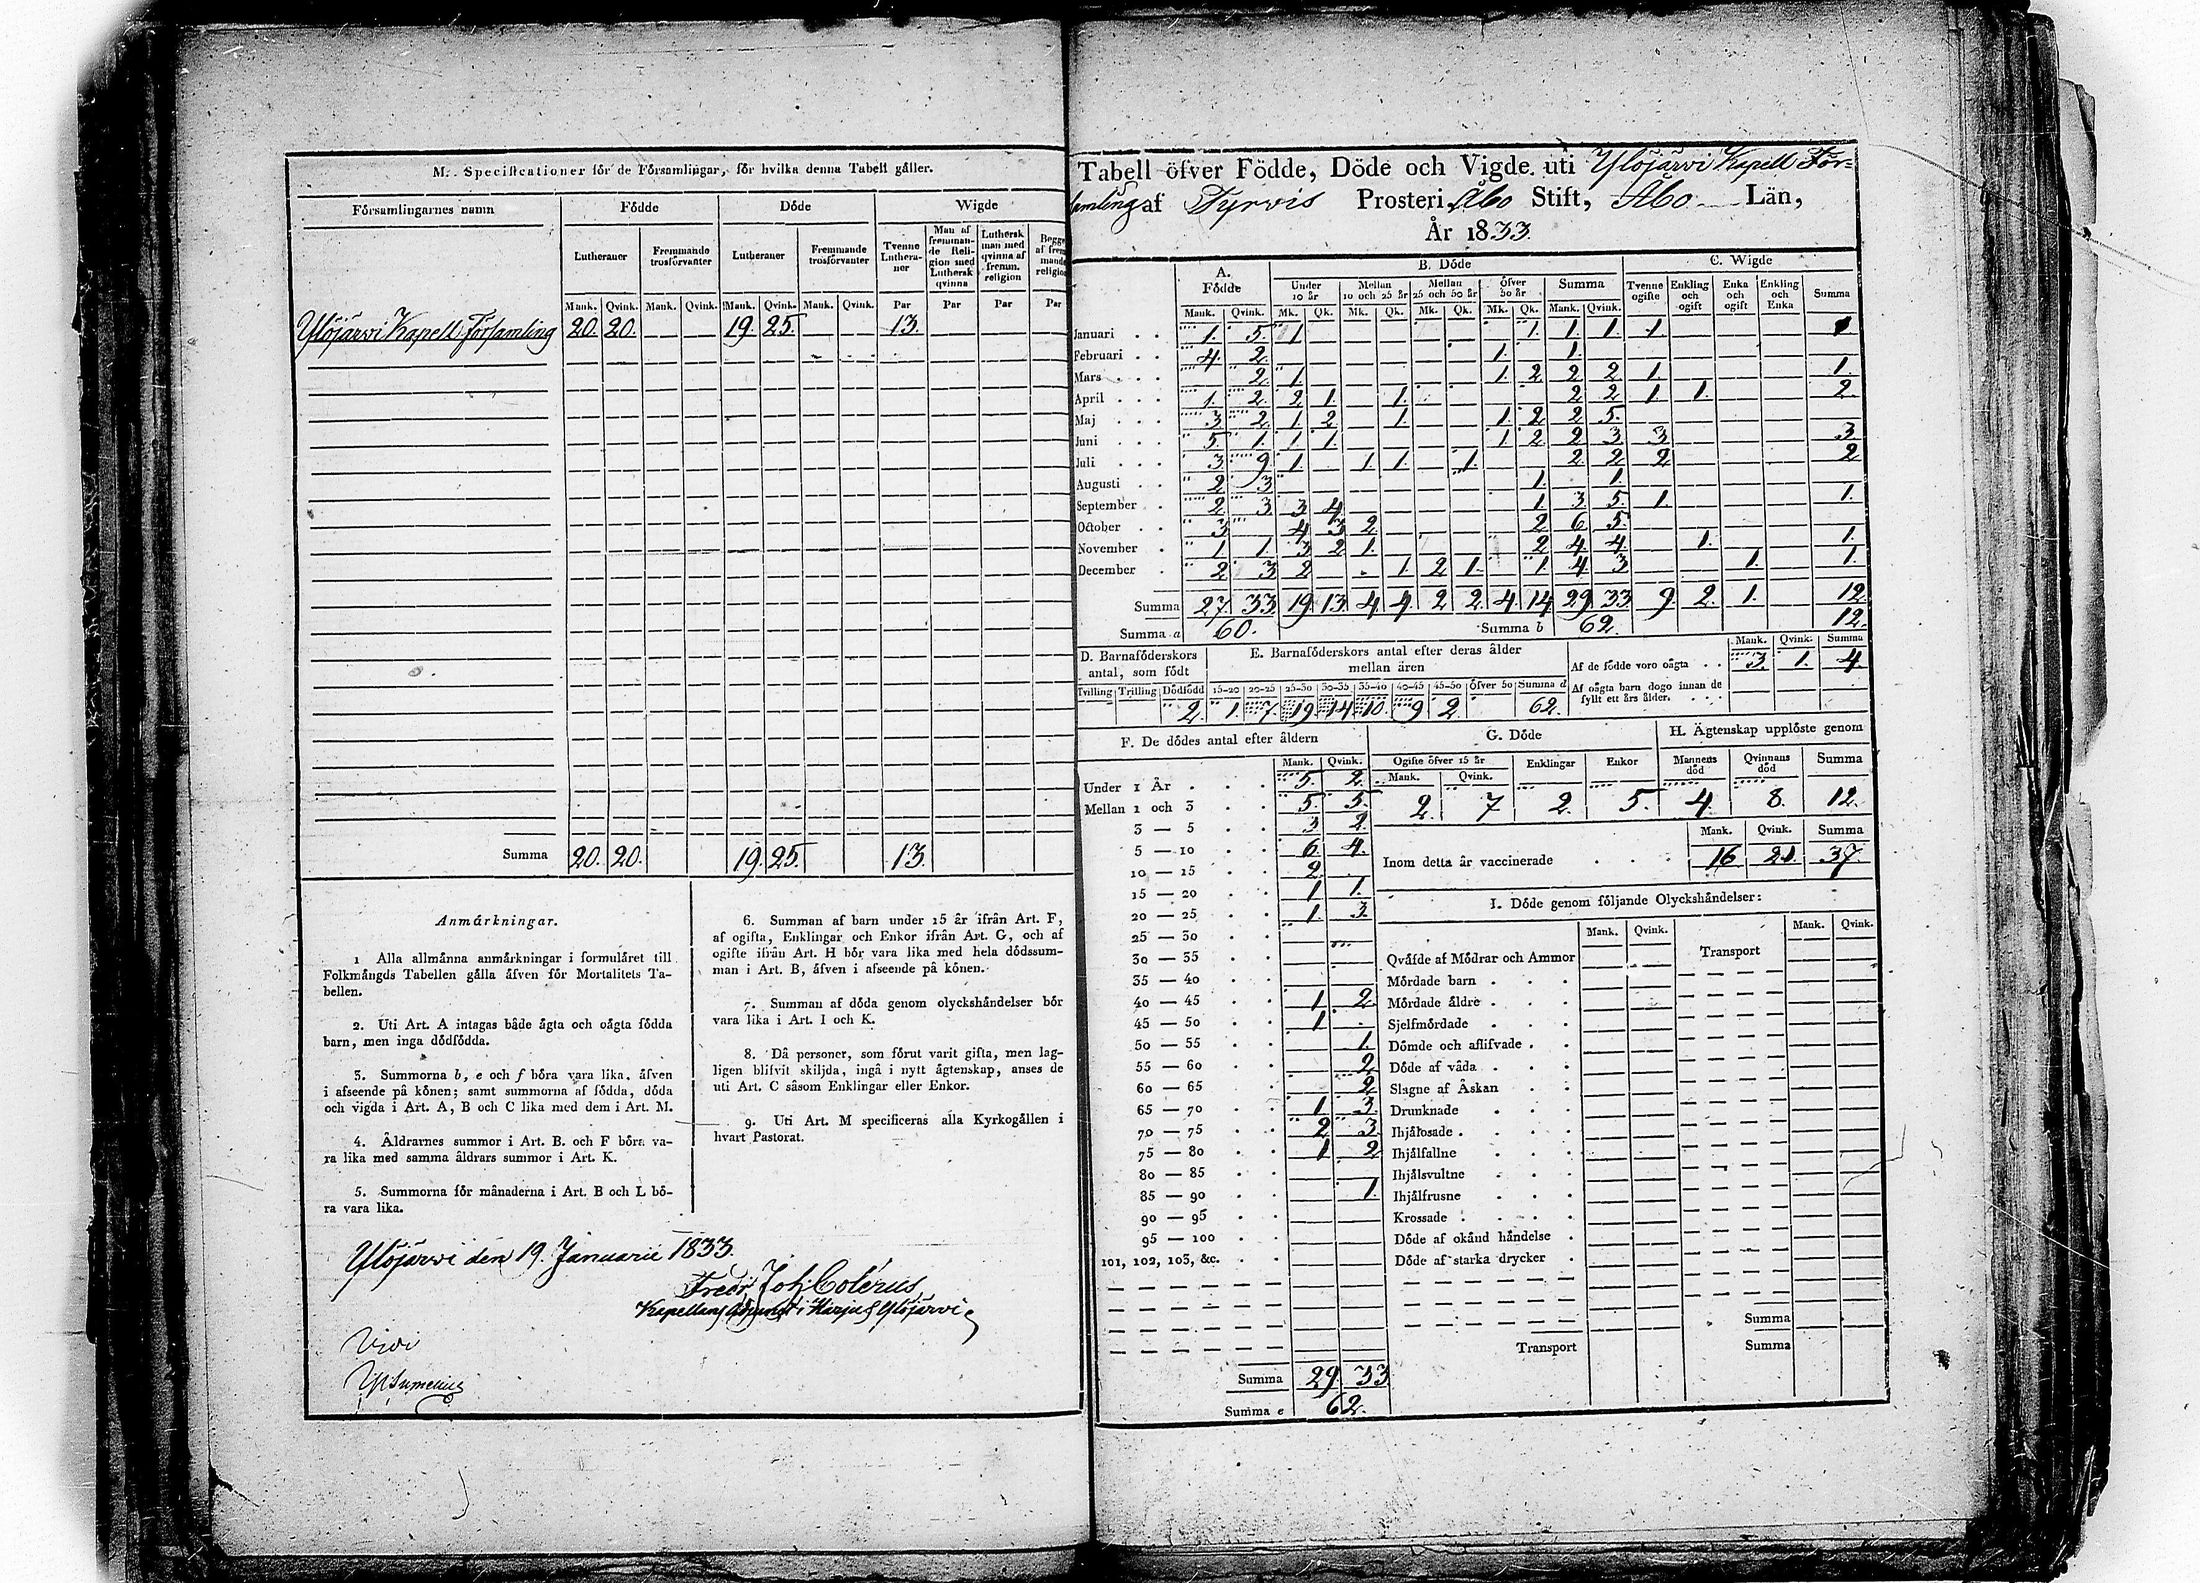 M. Specificationer för de Församlingar, för hvilka denna Tabell gäller.
Församlingarnes namn Födde Döde Wigde
Lutheraner Fremmande trosförvanter Lutheraner Fremmande trosförvanter Tvenne Lutheraner Man af fremmande Religion med Luthersk qvinna Luthersk man med qvinna af fremm. religion
Mank. Qvink. Mank. Qvink. Mank. Qvink. Mank. Qvink. Par Par Par Par
Ylöjärvi Kapell Församling 20. 20. 19. 25. 13.
Summa 20. 20. 19. 25. 13.
Anmärkningar.
1 Alla allmänna anmärkningar i formuläret till
Folkmängds Tabellen gälla äfven för Mortalitets Ta-
bellen.
2. Uti Art. A intagas både ägta och oägta födda
barn, men inga dödfödda.
3. Summorna b, e och f böra vara lika, äfven
i afseende på könen; samt summorna af födda, döda
och vigda i Art. A, B och C lika med dem i Art. M.
4. Åldrarnes summor i Art. B. och F böra va-
ra lika med samma åldrars summor i Art. K.
5. Summorna för månaderna i Art. B och L bö-
ra vara lika.
6. Summan af barn under 15 år ifrån Art. F,
af ogifta, Enklingar och Enkor ifrån Art. G, och af
ogifte ifrån Art. H bör vara lika med hela dödssum-
man i Art. B, äfven i afseende på könen.
7. Summan af döda genom olyckshändelser bör
vara lika i Art. I och K.
8. Då personer, som förut varit gifta, men lag-
ligen blifvit skiljda, ingå i nytt ägtenskap, anses de
uti Art. C såsom Enklingar eller Enkor.
9. Uti Art. M specificeras alla Kyrkogällen i
hvart Pastorat.
Ylöjärvi den 19. Januarii 1833.
Fredr. Joh. Colérus,
Kapellans Adjunct i Harju & Ylöjärvi
Vidi
Tabell öfver Födde, Döde och Vigde uti Ylöjärvi Kapell För-
samling af Tyrvis Prosteri, Åbo Stift, Åbo Län,
År 1833.
A. Födde B. Döde C. Wigde
Under 10 år Mellan 10 och 25 år Mellan 25 och 50 år Öfver 50 år Summa Tvenne ogifte Enkling och ogift Enka och ogift Enkling och Enka Summa
Mank. Qvink. Mk. Qk. Mk. Qk. Mk. Qk. Mk. Qk. Mank. Qvink.
Januari 1. 5. 1 1. 1. 1. 1. 1
Februari 4. 2. 1. 1.
Mars 2. 1. 1. 2 2 2 1. 1.
April 1. 2. 2 1. 1. 2 2 1. 1. 2.
Maj 3 2 1 2 1. 1. 2 2 5.
Juni 5. 1. 1 1. 1 2 2 3 3 3
Juli 3 9 1 1. 1. 1. 2 2 2 2
Augusti 2 3 1. 1.
September 2 3 3 4 1. 3 5. 1. 1.
October 3 4 3 2 2 6 5.
November 1 1. 3 2 1. 2 4 4 1. 1.
December 2 3 2 1 2 1. 1 4 3 1. 1.
Summa 27 33 19 13 4 4 2 2 4 14 29 33 9. 2. 1. 12.
Summa a 60. Summa b 62. 12.
D. Barnaföderskors antal, som födt
Tvilling Trilling Dödfödd
2.
E. Barnaföderskors antal efter deras ålder mellan åren
15-20 20-25 25-30 30-35 35-40 40-45 45-50 Öfver 50 Summa d
1. 7. 19 14 10. 9 2. 62.
Mank. Qvink. Summa
Af de födde voro oägta 3. 1. 4
Af oägta barn dogo innan de fyllt ett års ålder.
F. De dödes antal efter åldern
Mank. Qvink.
Under 1 År 5. 2.
Mellan 1 och 3 5. 5.
3 — 5 3 2.
5 — 10 6. 4.
10 — 15 2.
15 — 20 1 1.
20 — 25 1. 3.
25 — 30
30 — 35
35 — 40
40 — 45 1 2.
45 — 50 1.
50 — 55 1.
55 — 60 2
60 — 65 2
65 — 70 1 3.
70 — 75 2 3.
75 — 80 1 2
80 — 85
85 — 90 1.
90 — 95
95 — 100
101, 102, 103, &c.
Summa 29. 33
Summa e 62.
G. Döde
Ogifte öfver 15 år Enklingar Enkor
Mank. Qvink.
2. 7 2. 5.
H. Ägtenskap upplöste genom
Mannens död Qvinnans död Summa
4. 8. 12.
Mank. Qvink. Summa
Inom detta år vaccinerade 16 21. 37.
I. Döde genom följande Olyckshändelser:
Mank. Qvink. Transport Mank. Qvink.
Qväfde af Mödrar och Ammor
Mördade barn
Mördade äldre
Sjelfmördade
Dömde och aflifvade
Döde af våda
Slagne af Åskan
Drunknade
Ihjälosade
Ihjälfallne
Ihjälsvultne
Ihjälfrusne
Krossade
Döde af okänd händelse
Döde af starka drycker
Summa
Transport Summa